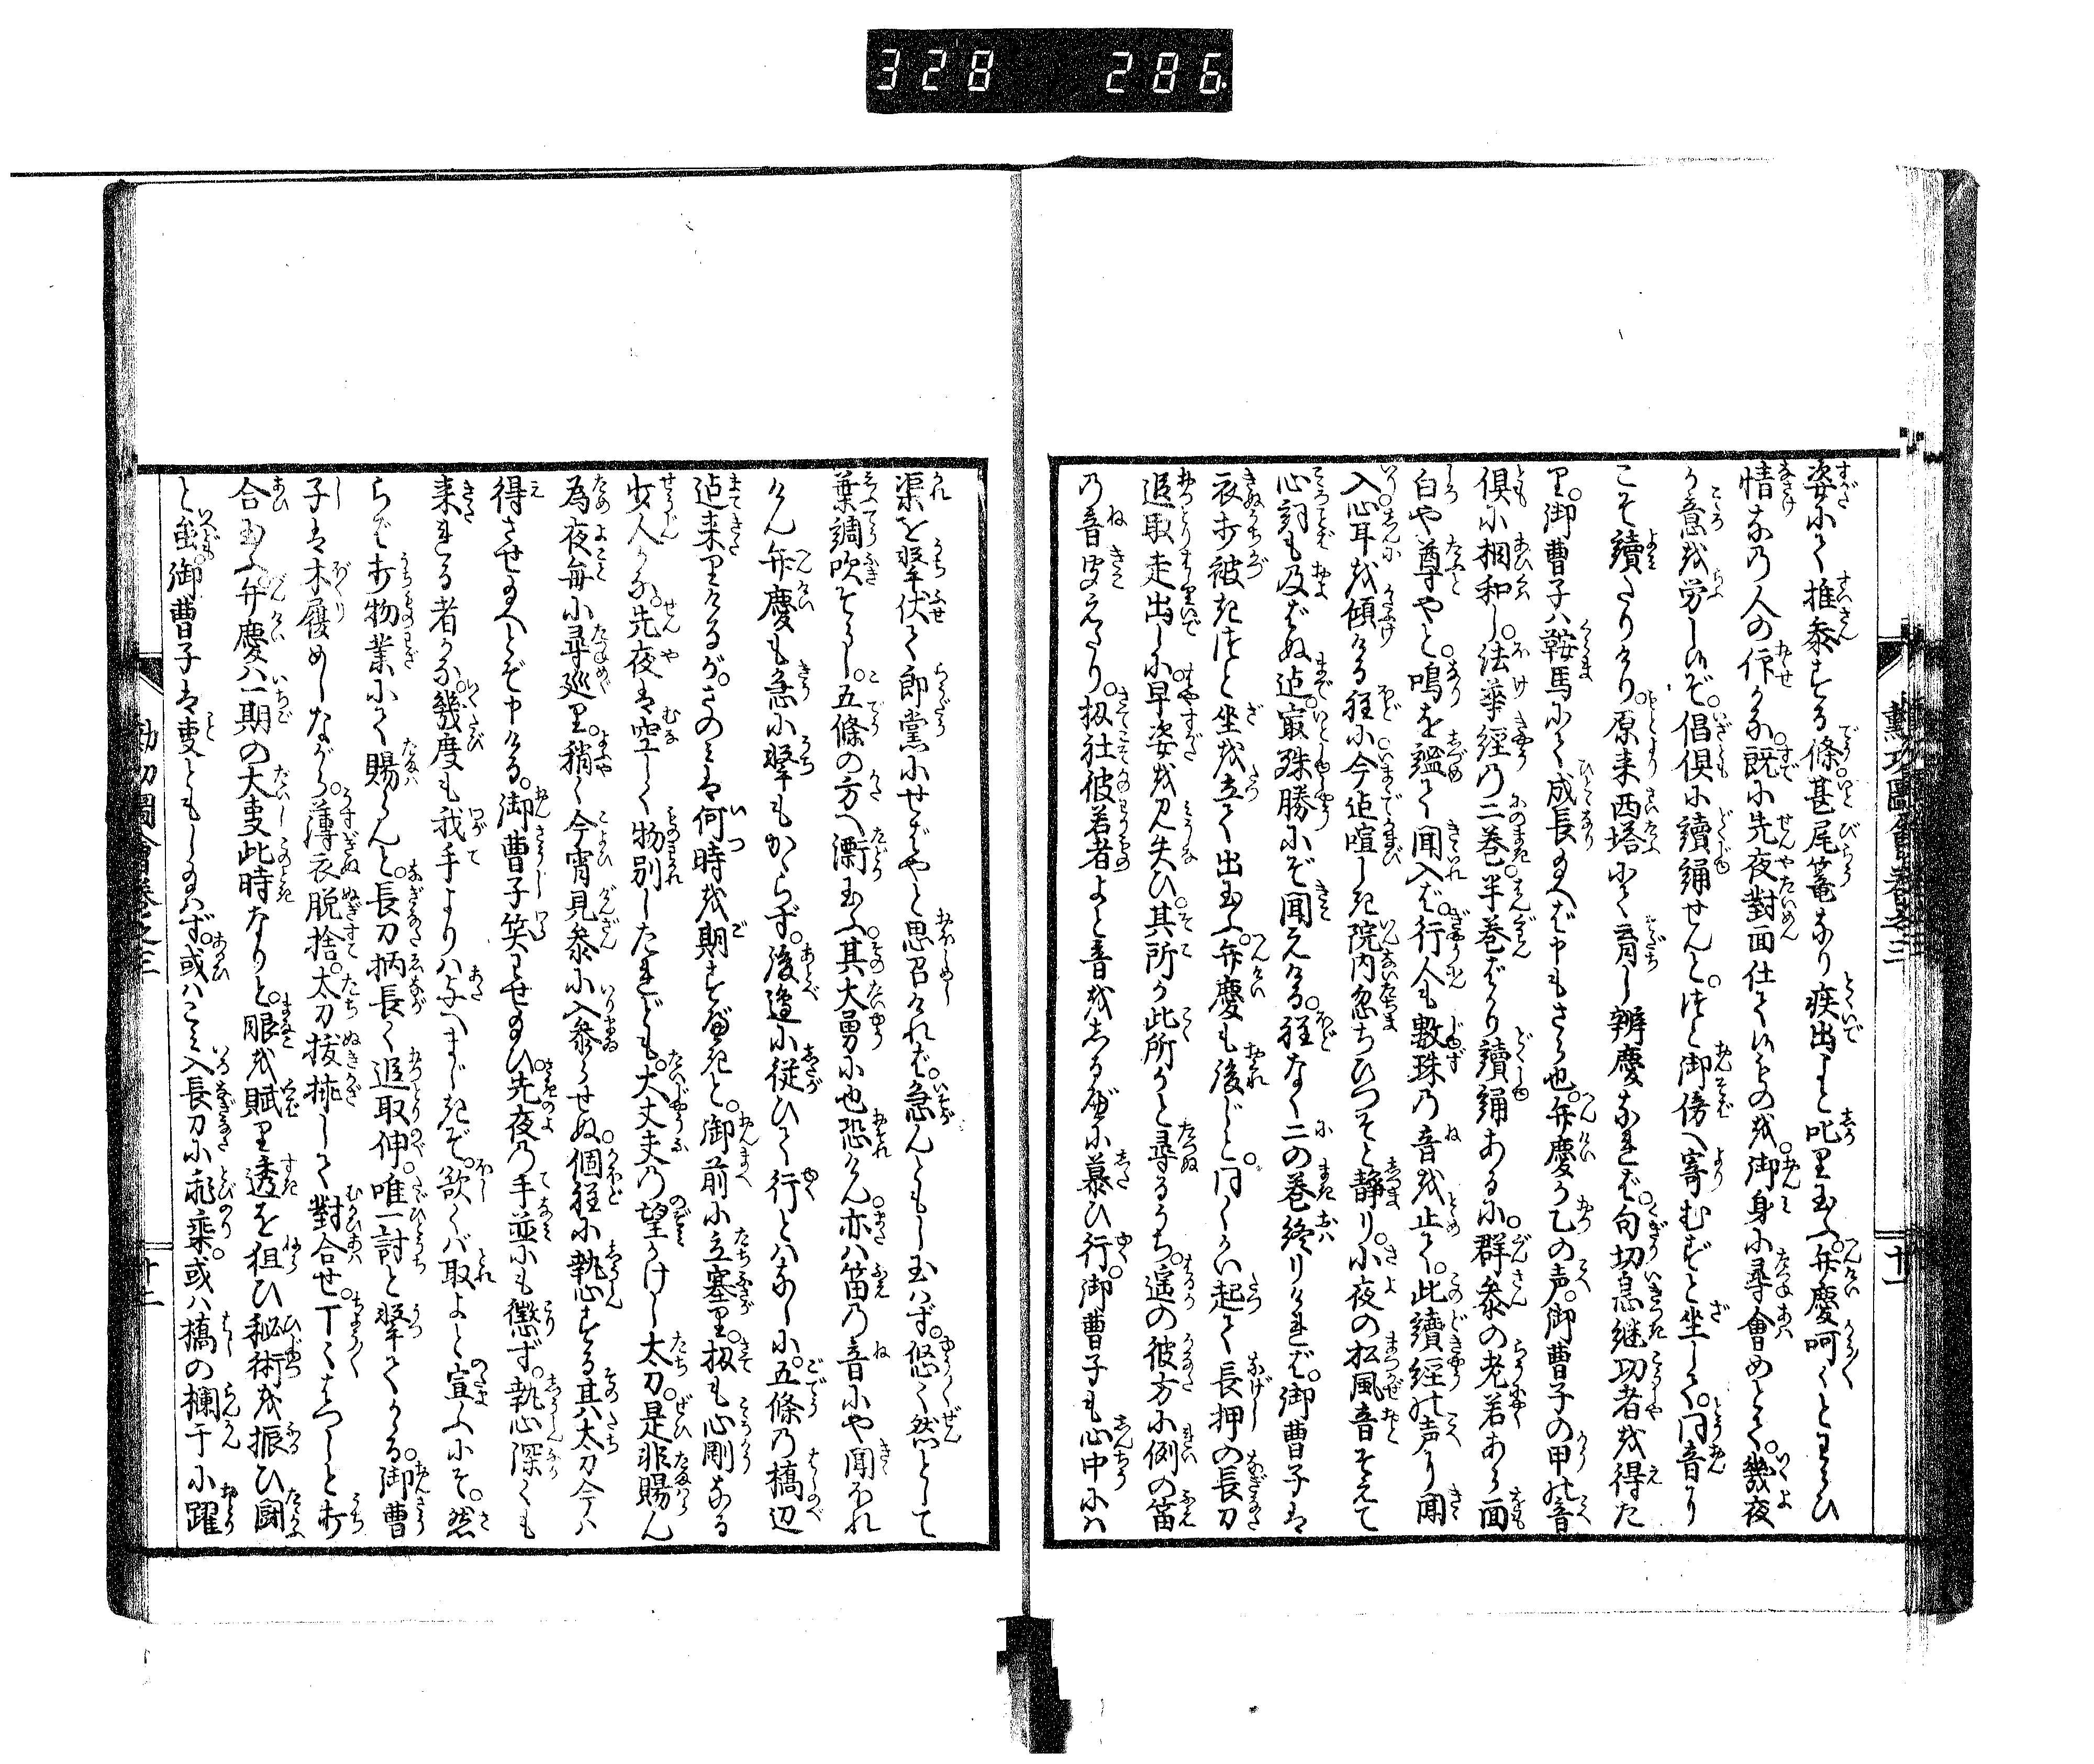 328 286
姿にて推参する條甚尾篭なり疾出よと叱り玉へ弁慶呵〻とわらひ
情なの人の仰かな既に先夜對面仕て候ものを御身に尋會めとて幾夜
か意を労し候ぞ倡倶に讀誦せんとはたと御傍へ寄むずと坐して同音に
こそ讀たりけり原来西塔にて育し辨慶なれば句切息継功者を得た
り御曹子ハ鞍馬にて成長玉へば申もさら也弁慶か乙の声御曹子の甲の音
倶に相和し法華經の二巻半巻ばかり讀誦あるに群参の老若あら面
白や尊やと鳴を鎮て聞入ば行人も數珠の音を止て此讀經の声に聞
入心耳を傾ける程に今迠喧しき院内忽ちひつそと静り小夜の松風音そえて
心詞も及ばぬ迠最殊勝にぞ聞えける程なく二の巻終りければ御曹子は
衣打被きはたと坐を立て出玉ふ弁慶も後じと同くかい起て長押の長刀
追取走出しに早姿を見失ひ其所か此所かと尋るうち遥の彼方に例の笛
の音聞えたり扨社彼若者よと音をしるべに慕ひ行御曹子も心中にハ
渠を撃伏て郎黨にせばやと思召けれど急んともし玉はず悠〻然として
葉調吹そらし五條の方へ漸玉ふ其大勇にや恐けん亦ハ笛の音にや聞ほれ
けん弁慶も急に撃もかゝらず後邉に従ひて行とハなしに五條の橋辺
迠来りけるがさのみは何時を期すべきと御前に立塞り扨も心剛なる
少人かな先夜は空しく物別したれども大丈夫の望かけし太刀是非賜ん
為夜毎に尋廻り稍〻今宵見参に入参らせぬ個程に執心する其太刀今ハ
得させ玉へとぞ申ける御曹子笑わせ玉ひ先夜の手並にも懲ず執心深くも
来れる者かな幾度も我手よりハ与へまじきぞ欲くバ取よと宣ふにぞ然
らば打物業にて賜らんと長刀柄長く追取伸唯一討と撃てかゝる御曹
子は木履めしながら薄衣脱捨太刀抜挿して對合せ丁〻はつしと打
合玉ふ弁慶ハ一期の大事此時なりと眼を賦り透を狙ひ秘術を振ひ闘
と雖御曹子は事ともし玉はず或ハこみ入長刀に飛乗或ハ橋の欄干に躍